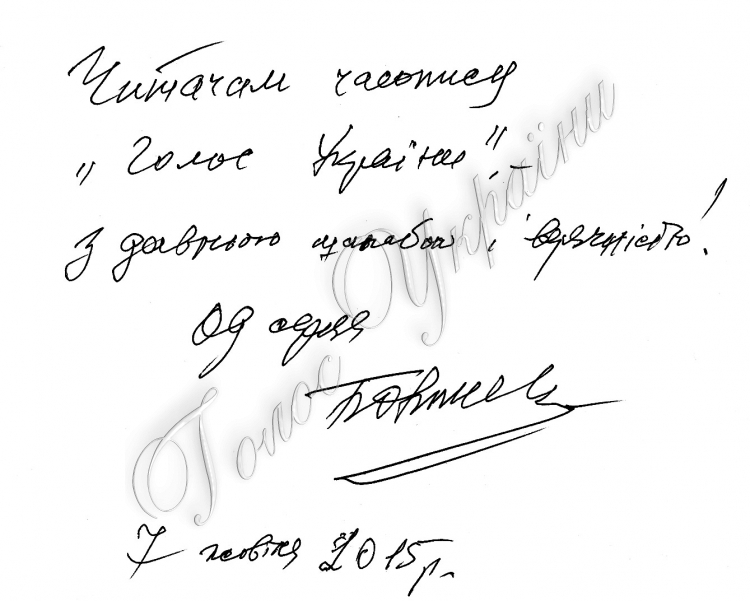 Читачам часопису
„Голос України” –
з давньою шаною і вдячністю!
Од серця
7 жовтня 2015 р.
Голос України